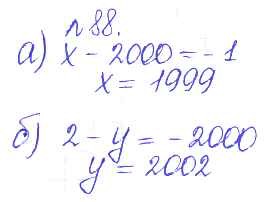 № 88.
а) x - 2000 = - 1
x = 1999
б) 2 - y = - 2000
y = 2002